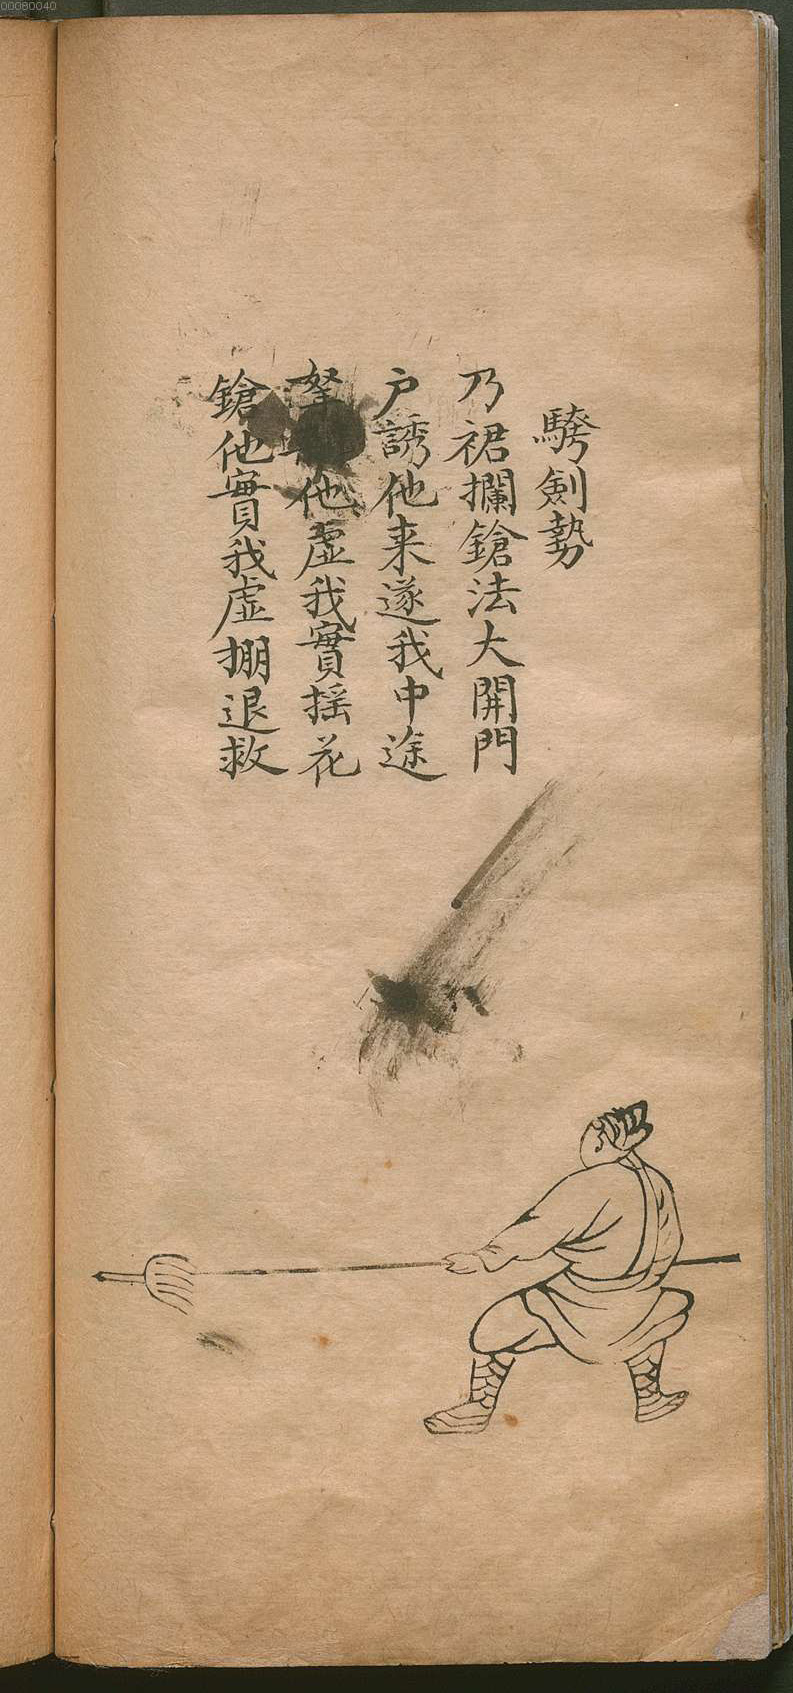 00080040
騎劍勢
乃裙攔鎗法大開門
户誘他来遂我中途
拏他虛我實揺花
鎗他實我虛掤退救